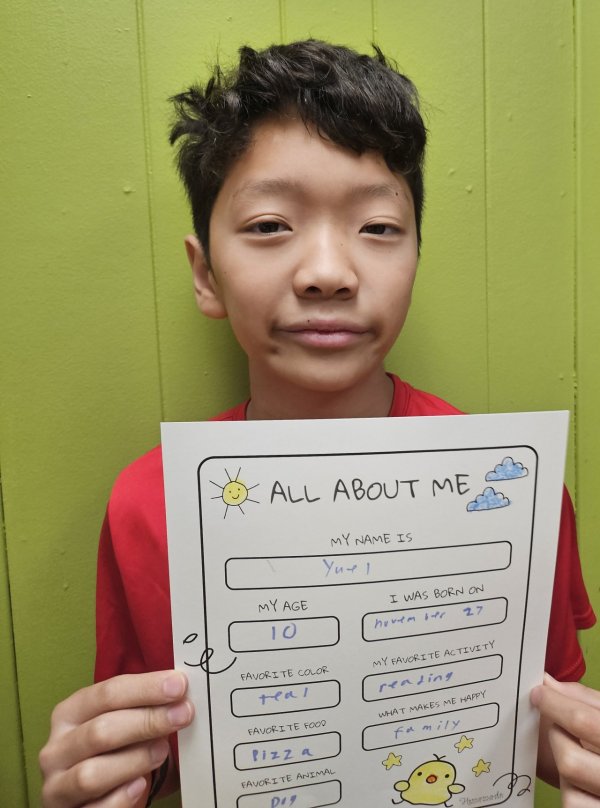 ALL ABOUT ME
MY NAME IS
Yuel
MY AGE
I WAS BORN ON
10
november 27
FAVORITE COLOR
MY FAVORITE ACTIVITY
teal
reading
FAVORITE FOOD
WHAT MAKES ME HAPPY
Pizza
family
FAVORITE ANIMAL
Dog